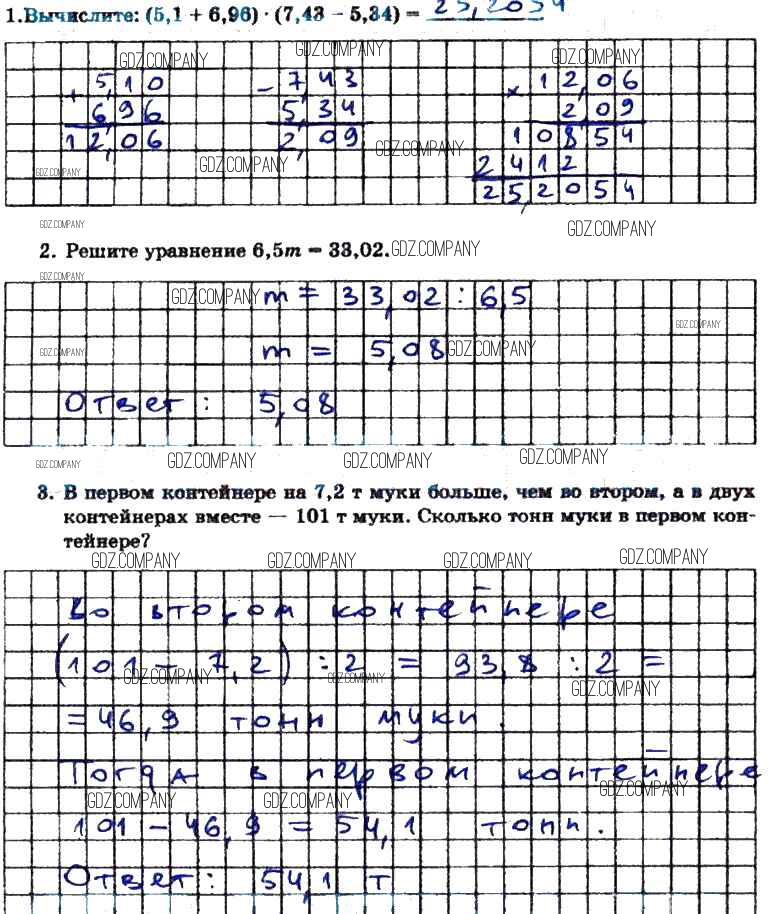 1.Вычислите: (5,1 + 6,96) · (7,43 – 5,34) = 25,2054
GDZ.COMPANY GDZ.COMPANY GDZ.COMPANY
+ 5,10 - 7,43 × 12,06
6,96 5,34 2,09
12,06 2,09 GDZ.COMPANY 10854
GDZ.COMPANY GDZ.COMPANY 2412
25,2054
GDZ.COMPANY GDZ.COMPANY
2. Решите уравнение 6,5m = 33,02. GDZ.COMPANY
GDZ.COMPANY
GDZ.COMPANY m = 33,02 : 6,5
GDZ.COMPANY
GDZ.COMPANY m = 5,08 GDZ.COMPANY
Ответ: 5,08
GDZ.COMPANY GDZ.COMPANY GDZ.COMPANY GDZ.COMPANY
3. В первом контейнере на 7,2 т муки больше, чем во втором, а в двух
контейнерах вместе — 101 т муки. Сколько тонн муки в первом кон-
тейнере?
GDZ.COMPANY GDZ.COMPANY GDZ.COMPANY GDZ.COMPANY
Во втором контейнере
(101 – 7,2) : 2 = 93,8 : 2 =
GDZ.COMPANY GDZ.COMPANY GDZ.COMPANY
= 46,9 тонн муки.
Тогда в первом контейнере
GDZ.COMPANY GDZ.COMPANY GDZ.COMPANY
101 – 46,9 = 54,1 тонн.
Ответ: 54,1 т